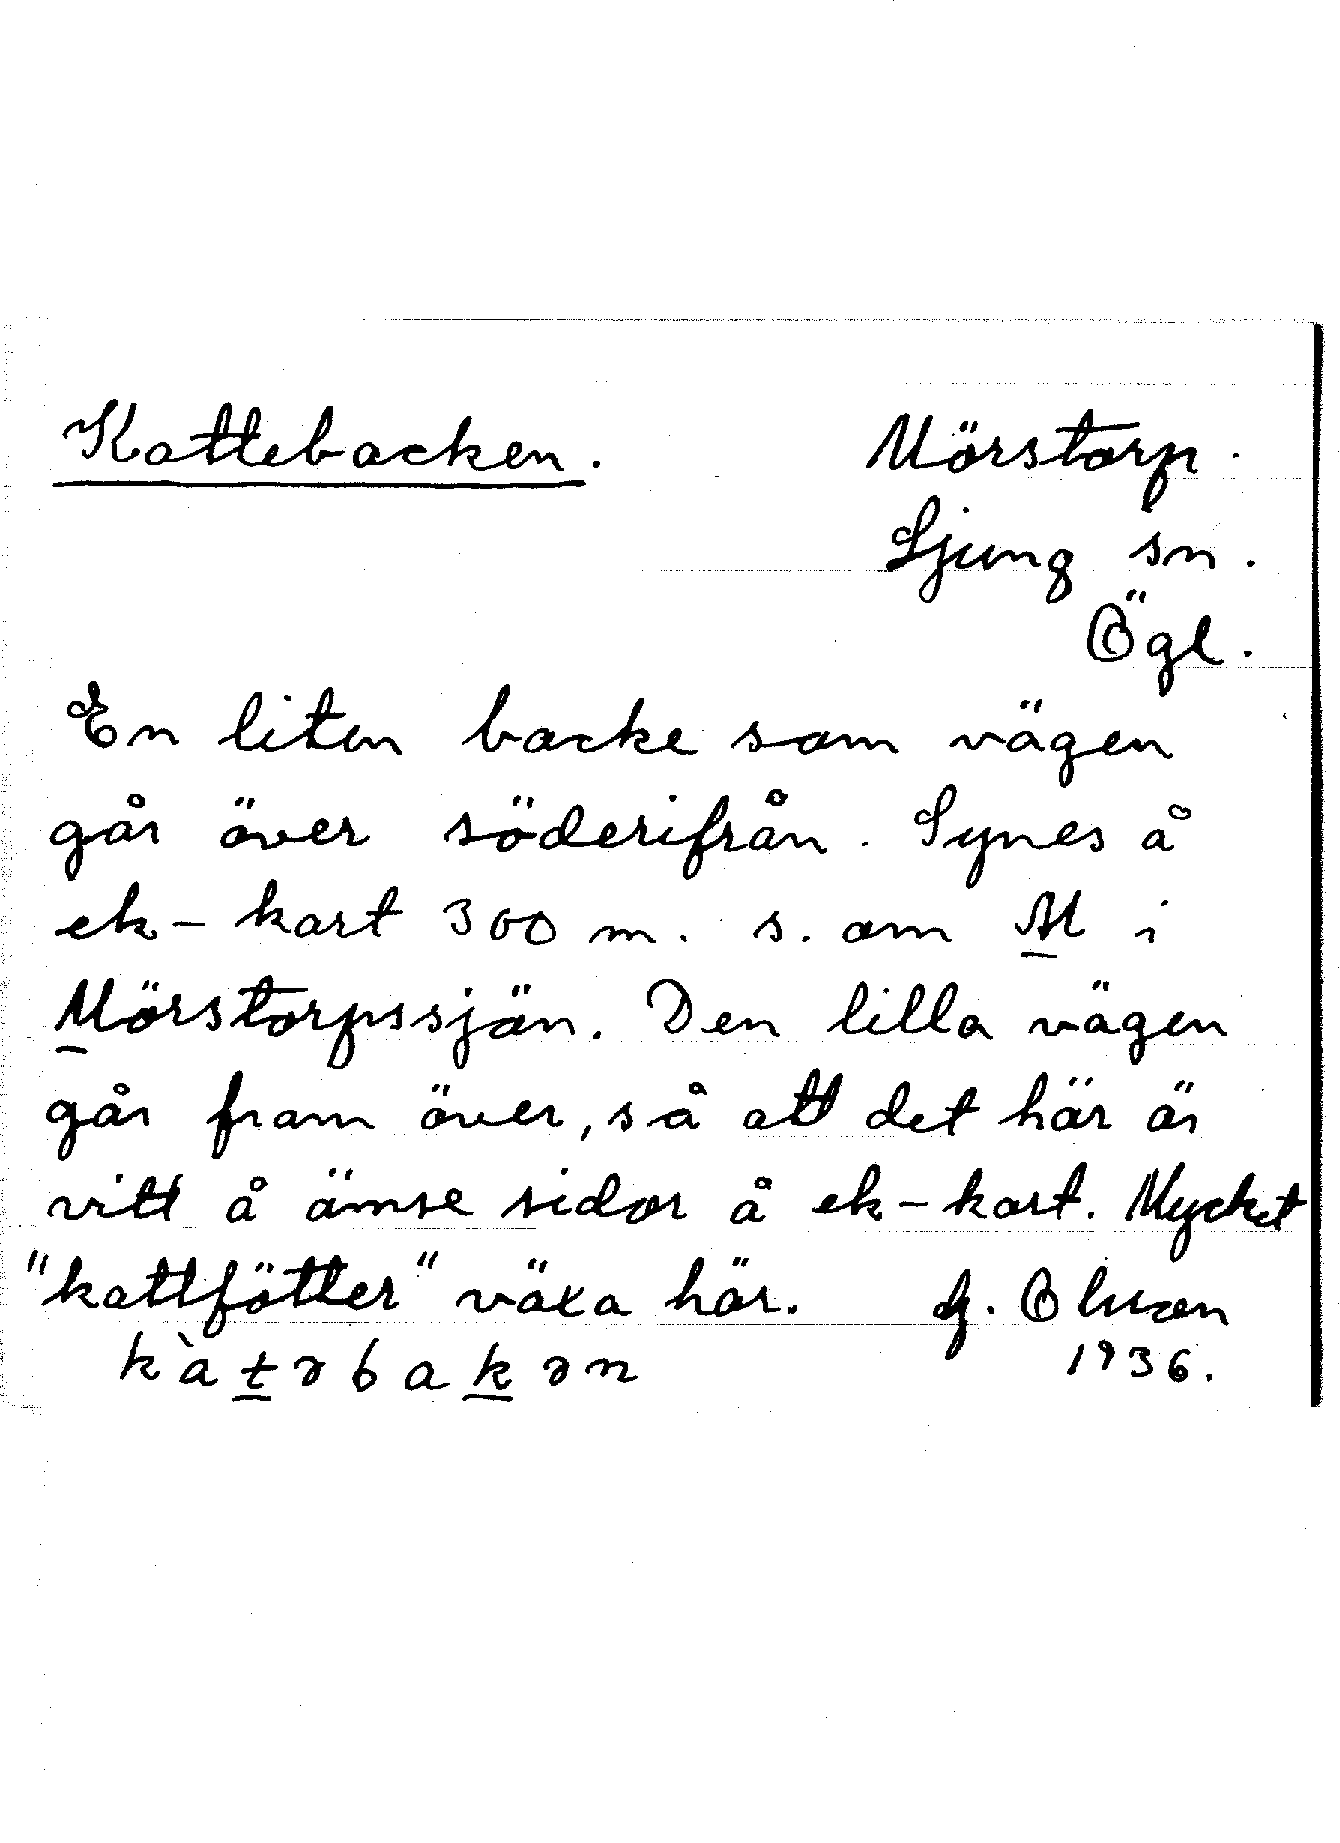 Kattebacken.
Mörstorp.
Ljung sn.
Ögl.
En liten backe som vägen
går över söderifrån. Synes å
ek-kart 300 m. s. om M i
Mörstorpssjön. Den lilla vägen
går fram över, så att det här är
vitt å ömse sidor å ek-kart. Mycket
"kattfötter" växa här. G. Olsson
kàtəbakən 1936.